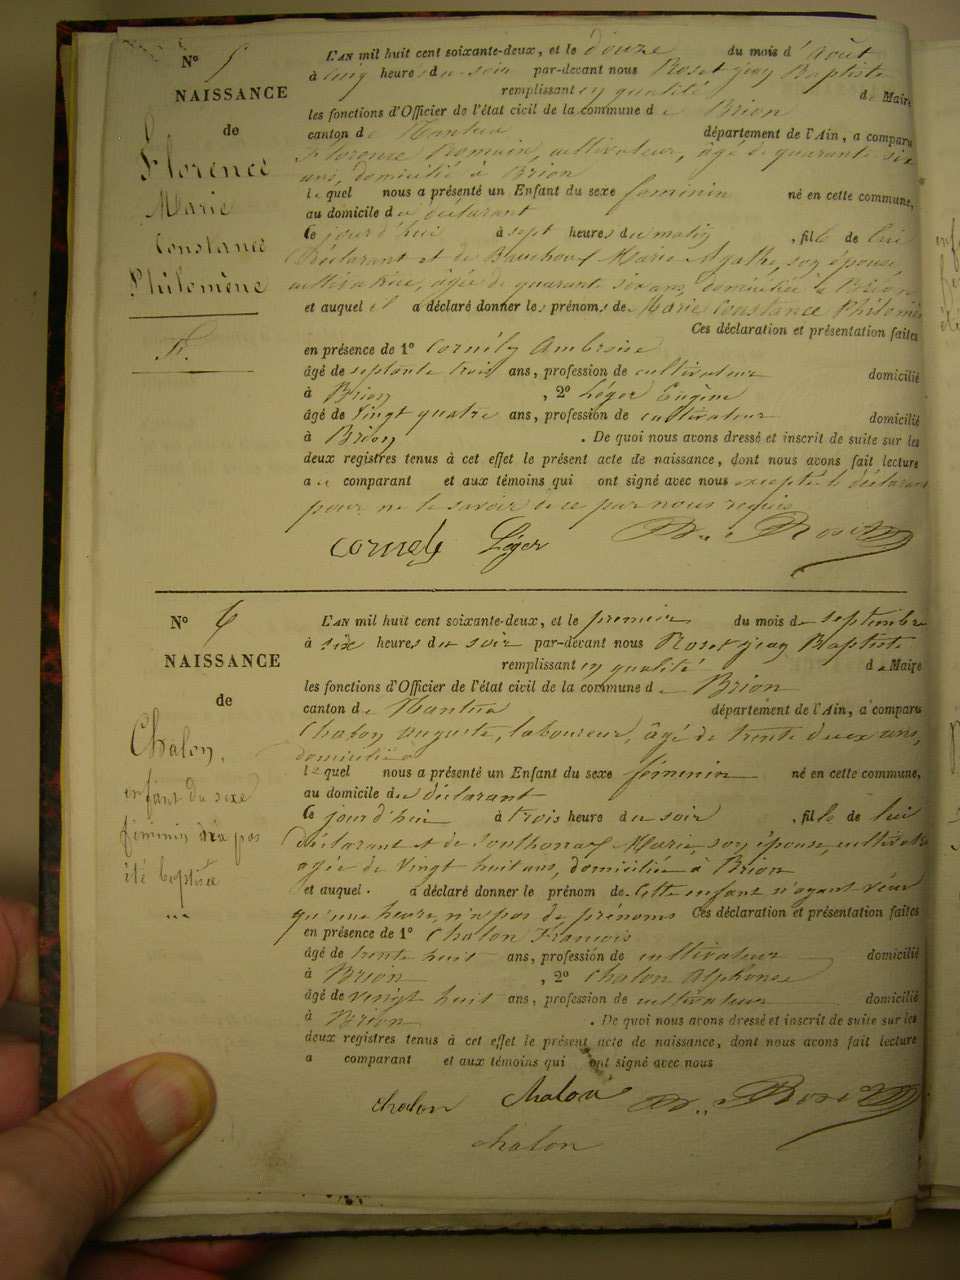 N° 5
NAISSANCE
de
Florence
Marie
Constance
Philomène
F.
L'AN mil huit cent soixante-deux, et le douze du mois d'Août
à cinq heures du soir par-devant nous Roset jean Baptiste
remplissant en qualité de Maire
les fonctions d'Officier de l'état civil de la commune de Brion
canton de Nantua département de l'Ain, a comparu
Florence Romain, cultivateur, âgé de quarante six
ans, domicilié à Brion
lequel nous a présenté un Enfant du sexe feminin né en cette commune,
au domicile du déclarant
Ce jourd'hui à sept heures du matin, fille de lui
Déclarant et de Marie Agathe, son épouse,
cultivatrice, âgée de quarante six ans, domiciliée à Brion
et auquel il a déclaré donner les prénoms de Marie Constance Philomène
Ces déclaration et présentation faites
en présence de 1° Ambroise
âgé de septante trois ans, profession de cultivateur domicilié
à Brion, 2° Léger Eugène
âgé de vingt quatre ans, profession de cultivateur domicilié
à Brion. De quoi nous avons dressé et inscrit de suite sur les
deux registres tenus à cet effet le présent acte de naissance, dont nous avons fait lecture
au comparant et aux témoins qui ont signé avec nous excepté le déclarant
pour ne le savoir de ce par nous requis
Léger Roset
N° 6
NAISSANCE
de
Chalon,
enfant du sexe
féminin n'a pas
été baptisée
L'AN mil huit cent soixante-deux, et le premier du mois de septembre
à six heures du soir par-devant nous Roset jean Baptiste
remplissant en qualité de Maire
les fonctions d'Officier de l'état civil de la commune de Brion
canton de Nantua département de l'Ain, a comparu
Chalon auguste, laboureur, âgé de trente deux ans,
domicilié
lequel nous a présenté un Enfant du sexe féminin né en cette commune,
au domicile du déclarant
Ce jourd'hui à trois heure du soir, fille de lui
déclarant et de Marie, son épouse, cultivatrice
agée de vingt huit ans, domiciliée à Brion
et auquel. a déclaré donner le prénom de Cette enfant n'ayant vécu
qu'une heure, n'a pas de prénoms Ces déclaration et présentation faites
en présence de 1° Chalon François
âgé de trente huit ans, profession de cultivateur domicilié
à Brion, 2° Chalon Alphonse
âgé de vingt huit ans, profession de cultivateur domicilié
à Brion. De quoi nous avons dressé et inscrit de suite sur les
deux registres tenus à cet effet le présent acte de naissance, dont nous avons fait lecture
a comparant et aux témoins qui ont signé avec nous
chalon chalon Roset
chalon